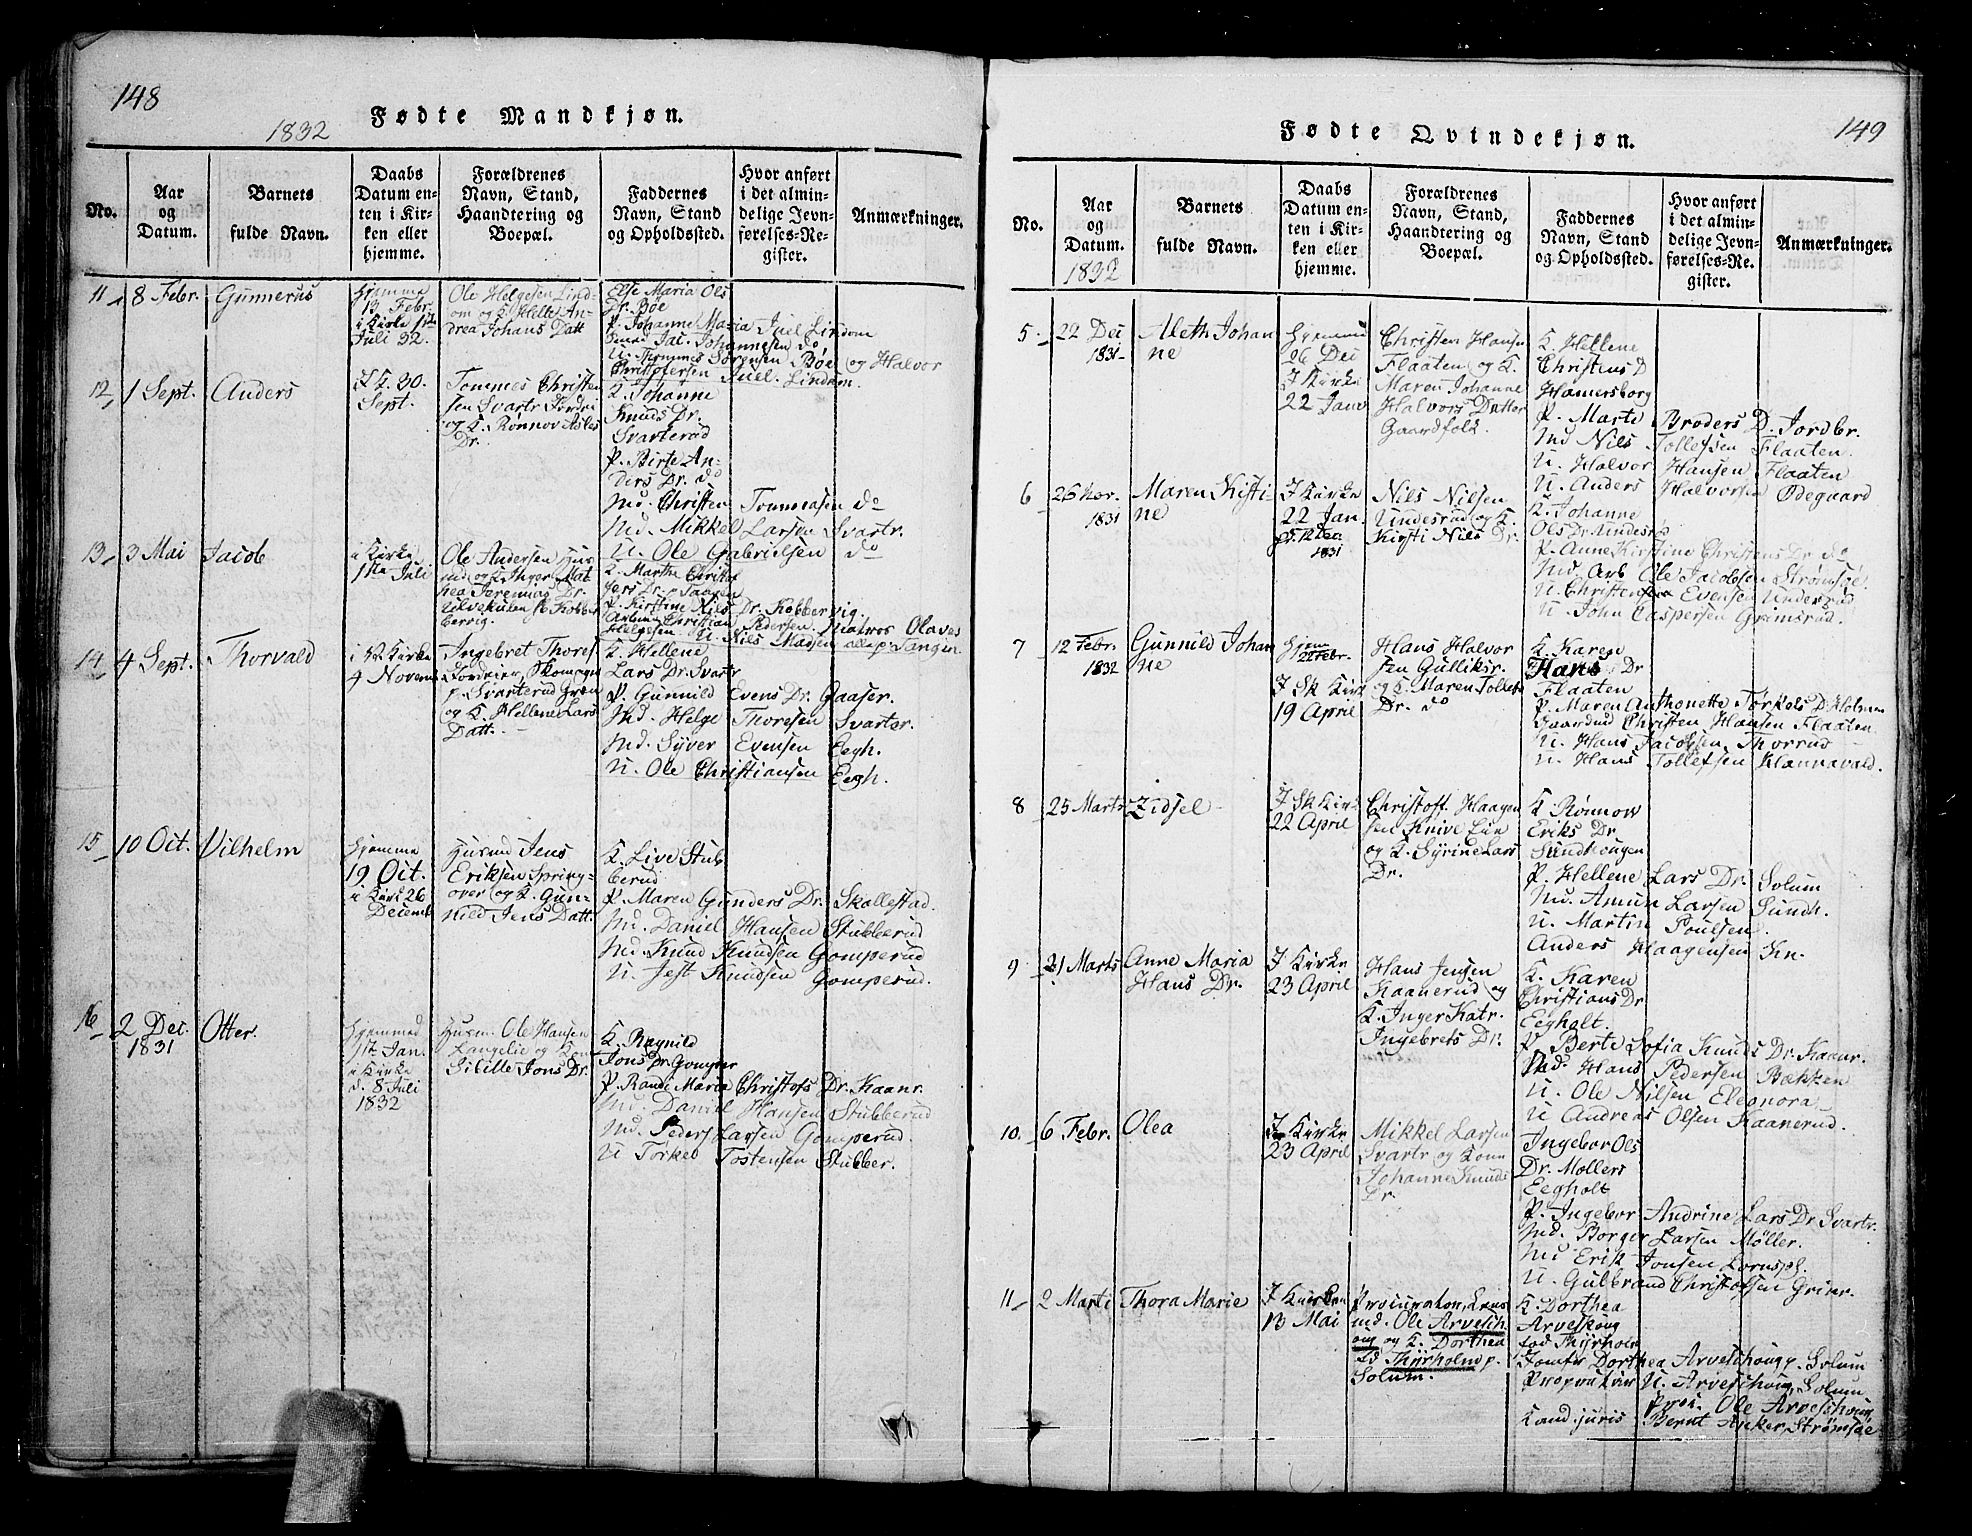 148
1832
Fødte Mandkjøn.
No.
Aar
og
Datum.
Barnets
fulde Navn.
Daabs
Datum en-
ten i Kir-
ken eller
hjemme.
Forældrenes
Navn, Stand,
Haandtering og
Boepæl.
Faddernes
Navn, Stand
og Opholdssted.
Hvor anført
i det almin-
delige Jevn-
førelses-Re-
gister.
Anmærkninger.
11
8 Febr.
Gunnerus
Hjemme
13 Febr
i Kirke 1ste
Juli 32.
Ole Helgesen Lind-
om og K. Helle An-
drea Johans Datt
Else Maria Ols
Dr. Bøe
P. Johanne Maria Juel Lindom
Jac. Johannesen do
U. Tommes Sørensen Bøe og Halvor
Christofersen Juel. Lindom.
12
1 Sept.
Anders
I K. 30.
Sept.
Tommes Christen
sen Svartr
og K. Rønnov Asles
Dr.
K. Johanne
Knuds Dr.
Svarterud
P. Birte An-
ders Dr. do
Md. Christen Tommesen do
Md. Mikkel Larsen Svartr.
U. Ole Gabrielsen do
13
3 Mai
Jacob
i Kirke
1ste Juli
Ole Andersen Hus
md og K. Inger Mat
hea Jeremias Dr.
Ulvekulen p Kobber
bervig.
K. Marthe Christof
fers Dr. p Tangen
P. Kirstine Nils Dr. Kobbervig.
Christian Pedersen. Matros Olaves
Helgesen U. Nils Madsen alle p Tangen
14
4 Sept.
Thorvald
i Kirke
4 Novem
Ingebret Thores
Skomager
p. Svarterud
og K. Hellene Lars
Datt.
K. Hellene
Lars Dr. Svartr
P. Gunnild Evens Dr. Gaaser.
Md. Helge Thoresen Svarter.
Md. Syver Evensen Eegh.
U. Ole Christiansen Eegh.
15
10 Oct.
Vilhelm
Hjemme
19 Oct.
i Kirke 26
Decemb
Husmd Jens
Eriksen Spring-
over og K. Gun-
nild Jens Datt.
K. Live Stub
berud
P. Maren Gunders Dr. Skallestad.
Md. Daniel Hansen Stubberud
Md. Knud Knudsen Gomperud
U. Jest Knudsen Gomperud.
16
2 Dec.
1831
Otter.
Hjemmed
17 Jan.
i Kirke
d. 8 Juli
1832
Husm. Ole Hansen
Langelie og Kon
Sibille Jons Dr.
K. Ragnild
Jons Dr. Gomper
P. Randi Maria Christofs Dr. Kaanr.
Md. Daniel Hansen Stubberud
Md. Peder Larsen Gomperud.
U Torkel Tostensen Stubber.
149
Fødte Qvindekjøn.
No.
Aar
og
Datum.
1832
Barnets
fulde Navn.
Daabs
Datum en-
ten i Kir-
ken eller
hjemme.
Forældrenes
Navn, Stand,
Haandtering og
Boepæl.
Faddernes
Navn, Stand
og Opholdssted.
Hvor anført
i det almin-
delige Jevn-
førelses-Re-
gister.
Anmærkninger.
5
22 Dec
1831
Aleth Johan
ne
Hjemmed
26 Dec
I Kirke
22 Janv
Christen Hansen
Flaaten og K.
Maren Johanne
Halvors Datter
Gaardfolk.
K. Hellene
Christens D
Hamersborg
P. Marte Broders D. Jordbr.
Md Nils Tollefsen Flaaten.
U. Halvor Hansen Flaaten
U. Anders Halvorsen Ødegaard
6
26
1831
Maren Kisti-
ne
I Kirke
22 Jan.
1831
Nils Nilsen
Undesrud og K.
Kirsti Nils Dr.
K. Johanne
Ols Dr. Undesr
P. Anne Kirstine Christens Dr do
Md. Arb Ole Jacobsen Strømsøe
U. Christen Evensen Undesrud
U. John Caspersen Grimsrud.
7
12 Febr.
1832
Gunnild Johan
ne
Hjem
22 Febr.
I Sk Kirk
19 April
Hans Halvor
sen Gullikir.
og K. Maren Tollefs
Dr. do
K. Karen
Hans Dr
Flaaten
P. Maren Anthonette Torkels D. Holmen
Christen Hansen Flaaten
U. Hans Jacobsen Thorrud
U. Hans Tollefsen Klannavald.
8
25 Marts
Zidsel
I Sk Kirk
22 April
Christoff. Haagen
sen Knive Eie
og K. Syrine Lars
Dr.
K. Rønnow
Eriks Dr
Sundhougen
P. Hellene Lars Dr. Solum
Md. Amun Larsen Sundh.
U. Martin Poulsen.
Anders Haagensen Kn.
9
21 Marts
Anne Maria
Hans Dr.
I Kirke
23 April
Hans Jensen
Kaanerud og
K. Inger Katr.
Ingebrets Dr.
K. Karen
Christians Dr
Eegholt.
P Berte Sofia Knuds Dr. Kaanr.
Md. Hans Pedersen Bakken
U. Ole Nilsen Eleonora
U Andreas Olsen Kaanerud.
10.
6 Febr.
Olea
I Kirke
23 April
Mikkel Larsen
Svartr og Kone
Johanne Knuds
Dr.
Ingebor Ols
Dr. Mollers
Eegholt
P. Ingebor Andrine Lars Dr Svartr.
Md. Borger Larsen Møller.
Md Erik Jonsen Lornspl.
U. Gulbrand Christofsen Grimr.
11
2 Marti
Thora Marie
I Kirken
13 Mai
Procurator, Lens
md. Ole Arvesch
oug og K. Dorthea
fd Thyrholm p.
Solum.
K. Dorthea
Arveskoug
fød Thyrholm
Jomfr Dorthea Arveschoug p. Solum
Proprietær U. Arveschoug Solum
Proc. Ole Arveschoug
Cand. juris Bernt Anker Strømsøe